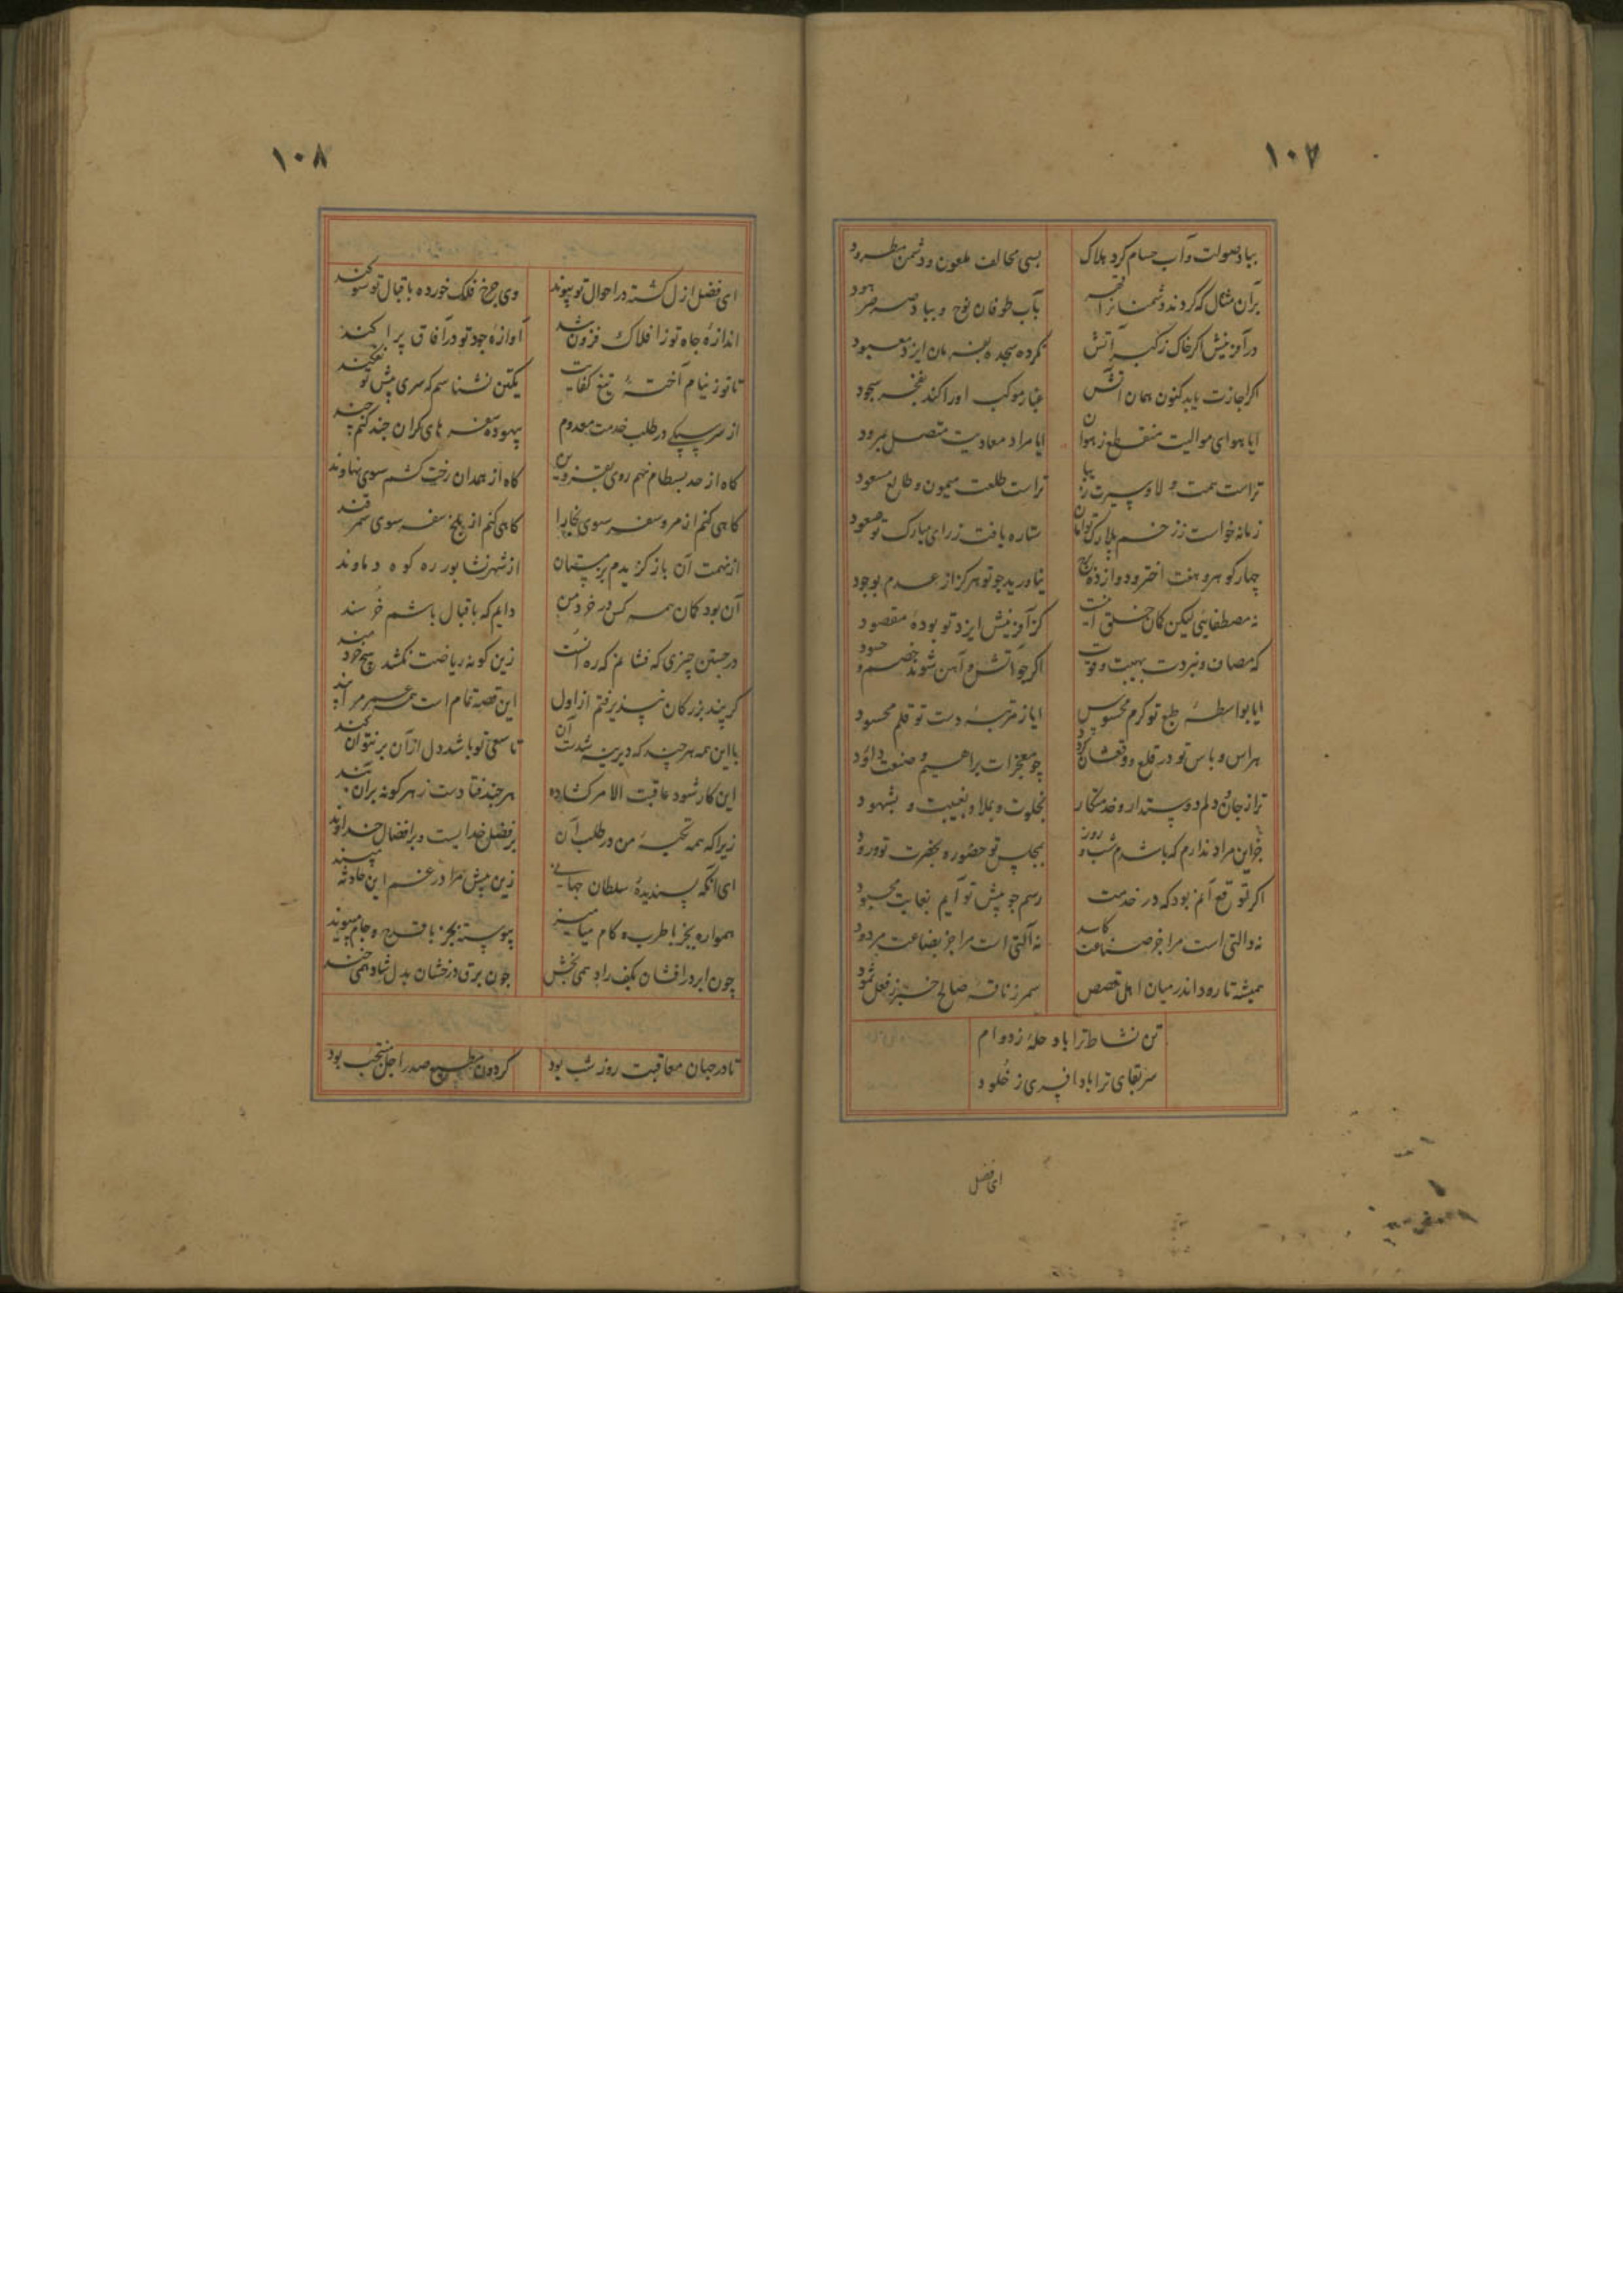 ۱۰۷
بباد صولت و آب حسام کرد هلاک بسی مخالف ملعون و دشمن مطرود
بر آن مثال که کردند دشمنانرا قهر بآب طوفان نوح و بباد صرصر هود
در آفرینش اگر خاک زکبر آتش نکرده سجده بفرمان ایزد معبود
اگر اجازت یابد کنون همان آتش غبار موکب او را کند بفخر سجود
ایا هوای موالیت منقطع ز هوان ایا مراد معادیت متصل برود
تراست همت والا و سیرت زیبا تراست طلعت میمون و طالع مسعود
زمانه خواست ز زخم بلارک تو امان ستاره یافت ز رای مبارک تو صعود
چهار گوهر و هفت اختر و دوازده برج نیاورید چو تو هرگز از عدم بوجود
نه مصطفائی لیکن کان خلق آنست کز آفرینش ایزد تو بودهٔ مقصود
که مصاف و نبردت بهیبت و قوت اگر چو آتش و آهن شوند خصم و حسود
ایا بواسطهٔ طبع تو کرم محسوس ایا ز مرتبهٔ دست تو قلم محسود
هراس و باس تو در قلع و وقعشان کرد چو معجزات براهیم و صنعت داود
ترا ز جان و دلم دوستدار و خدمتکار بخلوت و بملا و بغیبت و بشهود
جز این مراد ندارم که باشدم شب و روز بمجلس تو حضور و بحضرت تو ورود
اگر توقع آنم بود که در خدمت رسم چو پیش تو آیم بغایت مجهود
نه والتی است مرا جز صناعت کاسد نه آلتی است مرا جز بضاعت مردود
همیشه تا رود اندر میان اهل قصص سمر ز ناقهٔ صالح خبر ز فعل ثمود
تن نشاط ترا باد حلهٔ ز دوام
سر بقای ترا باد افسری ز خلود
ای فضل
۱۰۸
ای فضل ازل گشته در احوال تو پیوند وی چرخ فلک خورده باقبال تو سوگند
اندازهٔ جاه تو ز افلاک فزون شد آوازهٔ جود تو در آفاق پراکند
تا تو ز نیام آختهٔ تیغ کفایت یکتن نشناسم که سری پیش تو نفکند
از سر سبکی در طلب خدمت معدوم بیهوده سفرهای گران چند کنم چند
گاه از حد بسطام نهم روی بقزوین گاه از همدان رخت کشم سوی نهاوند
گاهی کنم از مرو سفر سوی بخارا گاهی کنم از بلخ سفر سوی سمرقند
از نهمت آن باز گزیدم بزمستان از شهر نشابور ره کوه دماوند
آن بود گمان همه کس در خرد من دایم که باقبال باشم خرسند
در جستن چیزی که نشانم که ره آنست زین گونه ریاضت نکشد هیچ خردمند
گر پند بزرگان نپذیرفتم از اول این قصه تمام است همه عمر مرا پند
با این همه هر چند که دیرینه شدست آن تا سعی تو باشد دل از آن بر نتوان کند
این کار شود عاقبت الامر گشاده هر چند فتادست ز هر گونه بر آن بند
زیرا که همه تکیهٔ من در طلب آن بر فضل خدایست و بر افضال خداوند
ای آنکه پسندیدهٔ سلطان جهانی زین بیش مرا در غم این حادثه مپسند
همواره بجز با طرب و کام میامیز پیوسته بجز با قدح و جام مپیوند
چون ابر درافشان بکف راد همی بخش چون برق درخشان بدل شاد همی خند
تا در جهان معاقبت روز شب بود گردون مطیع صدر اجل منتجب بود